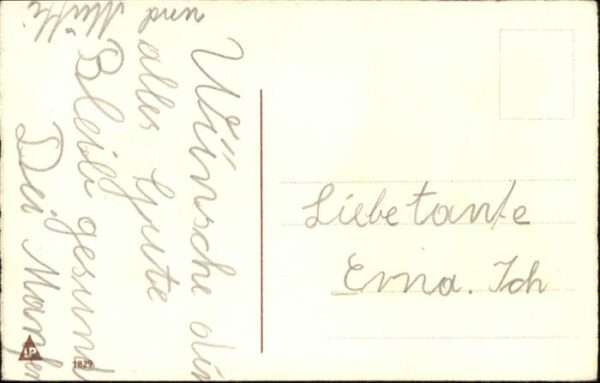 Liebe tante
Erna. Ich
Wünsche dir
alles Gute
Bleib gesund
Dei
und
Mutti
1829